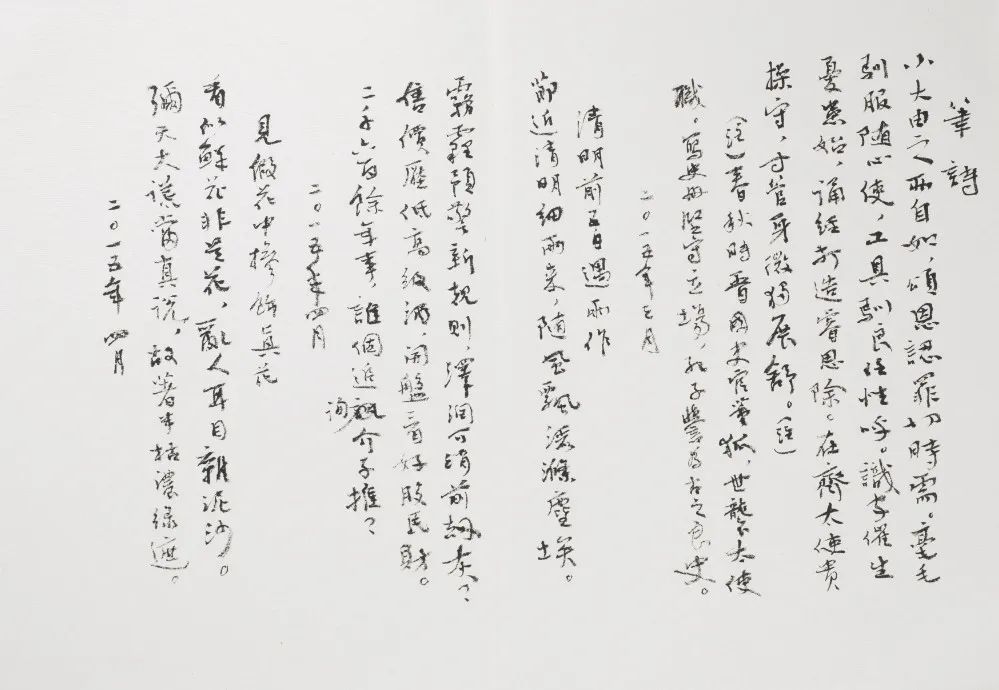 筆詩
小大由之兩自如，頌恩認罪切時需。毫毛
馴服随心使，工具馴良任性呼。識字催生
憂患始，誦經打造睿思除。在齊太使貴
操守，寸管身微獨展舒。（注）
（注）春秋時晋國史官董狐，世襲太使
職。寫史册堅守立場，孔子譽為古之良史。
二〇一五年三月
清明前五日遇雨作
節近清明細雨來，随風飄洒滌塵埃。
霧霾預警新規則，澤潤可消前劫灰？
售價雖低高級酒，開盤看好股民財。
二千六百餘年事，誰個追詢介子推？
二〇一五年四月
見假花中摻餘真花
看似鮮花非是花，亂人耳目雜泥沙。
彌天大謊當真説，故著半枯濃绿遮。
二〇一五年 四月